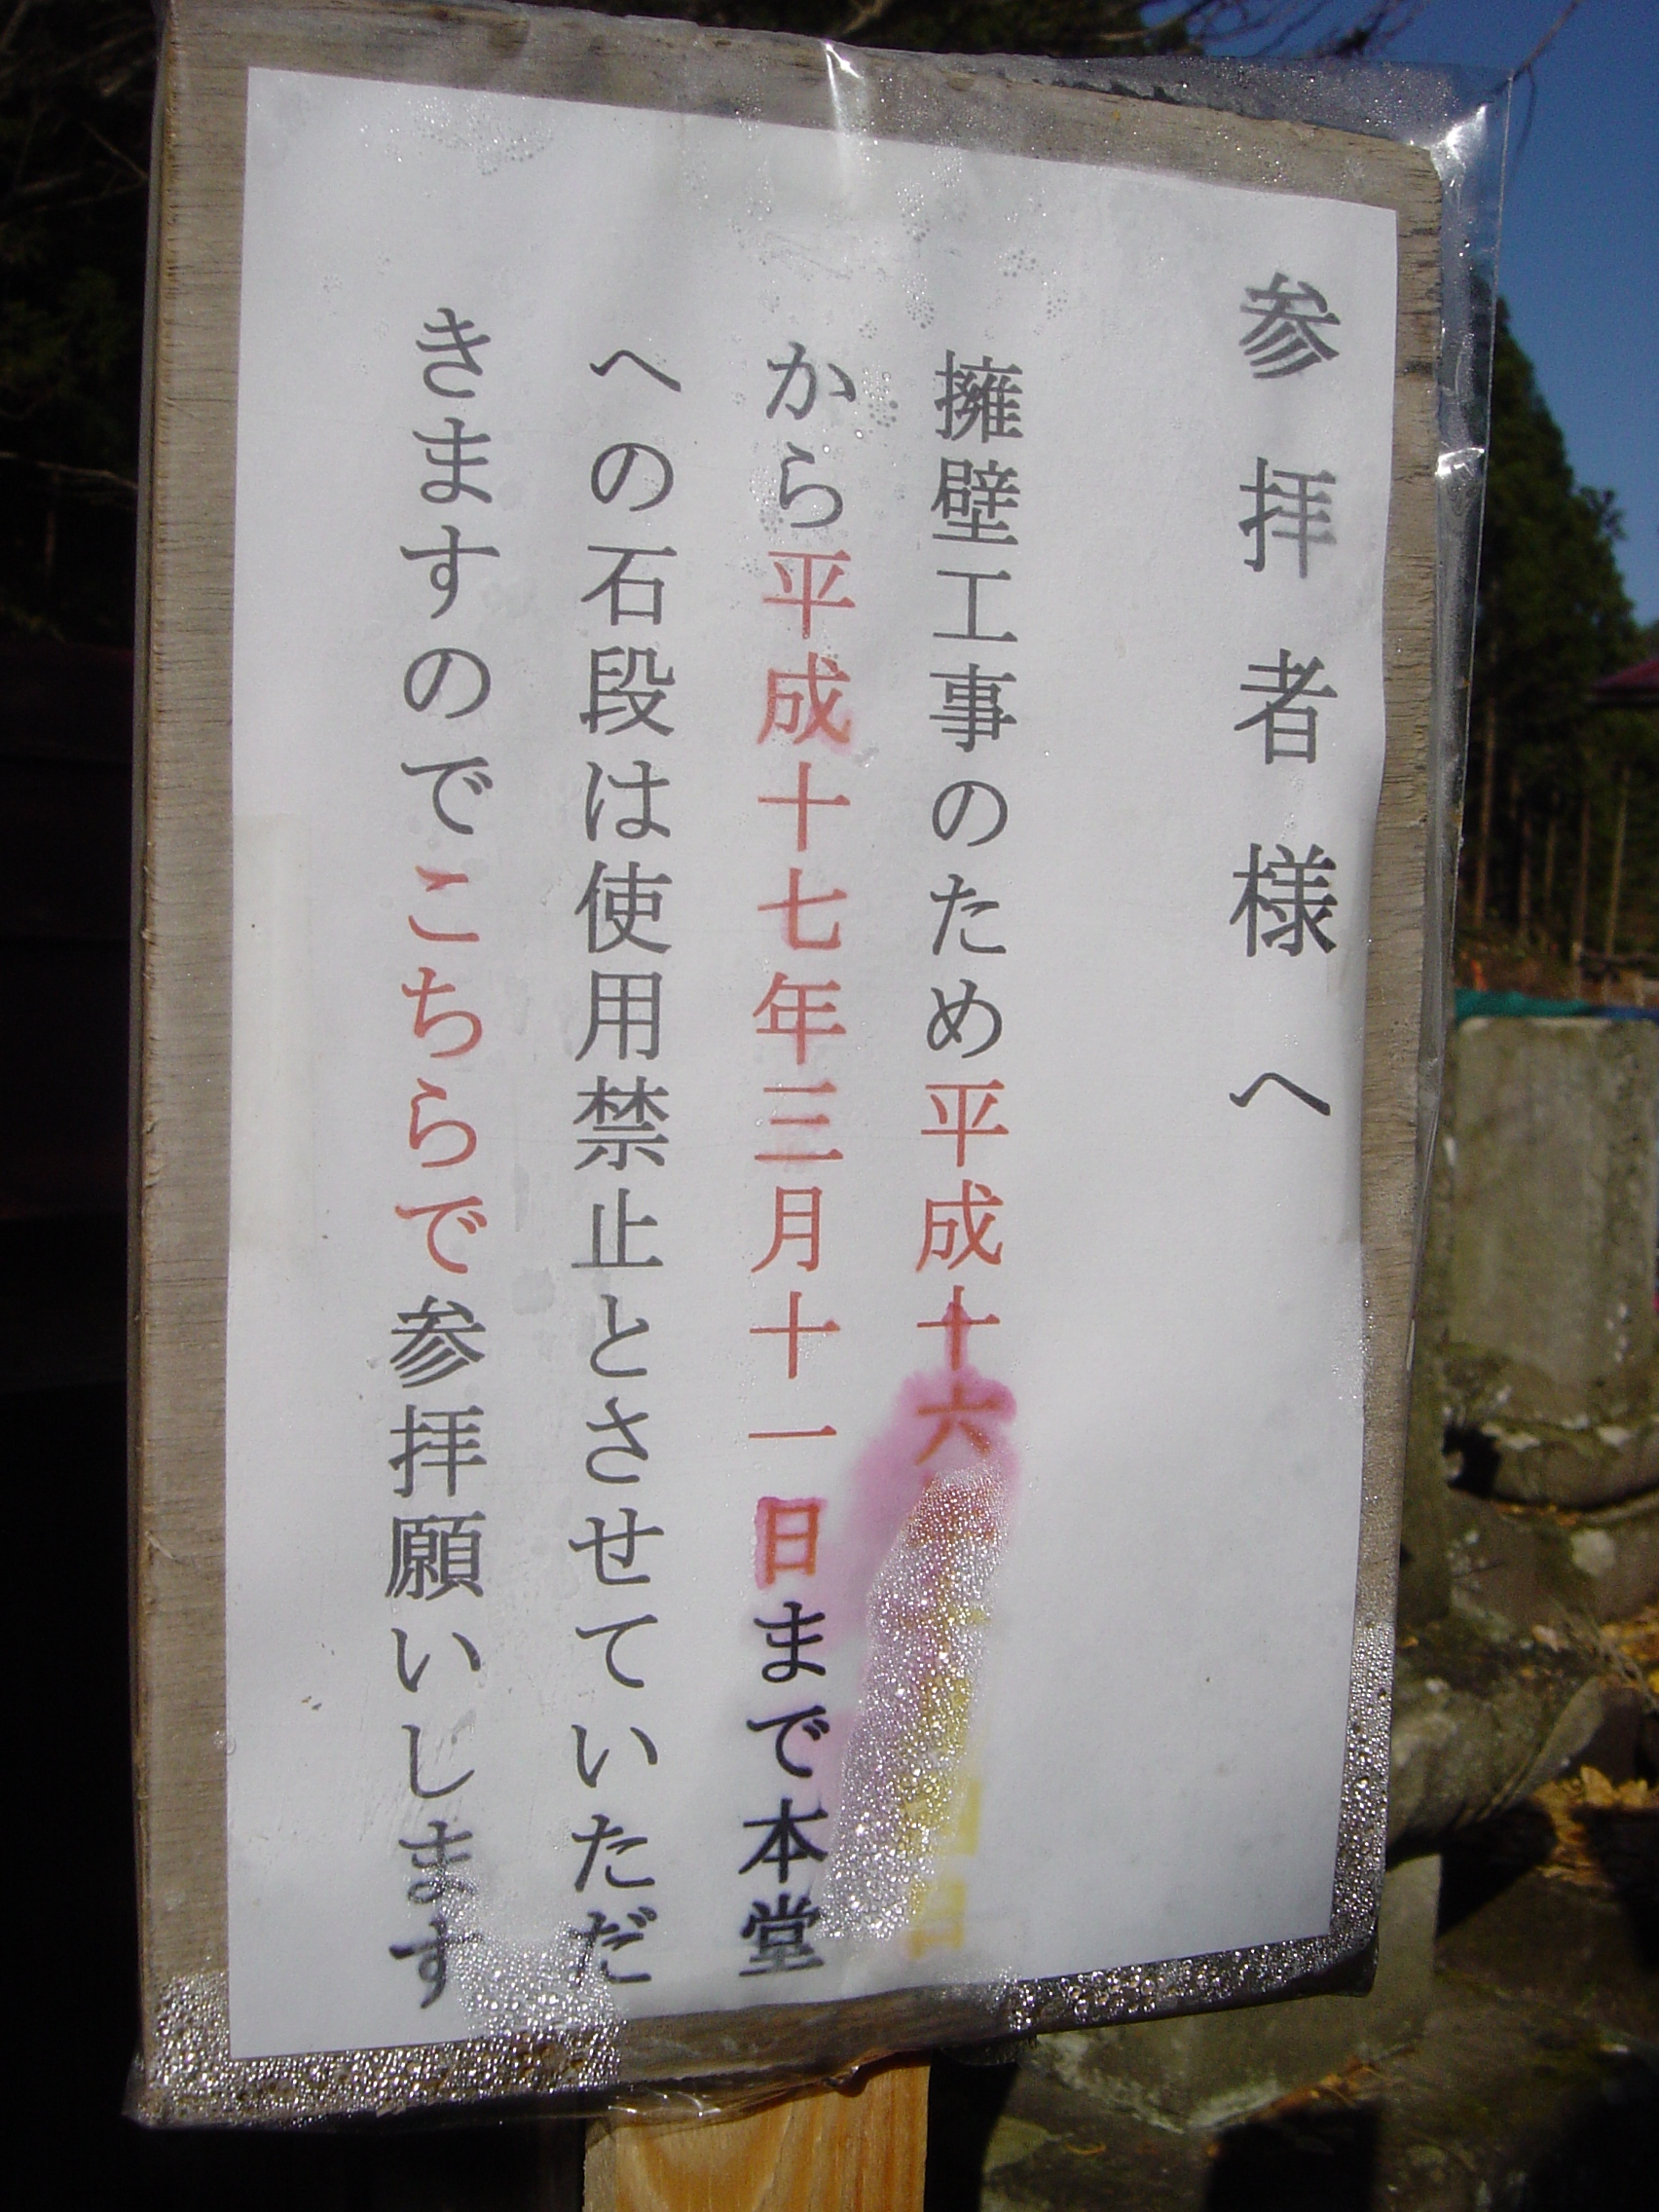 参拝者様へ
擁壁工事のため平成十六
から平成十七年三月十一日まで本堂
への石段は使用禁止とさせていただ
きますのでこちらで参拝願いします